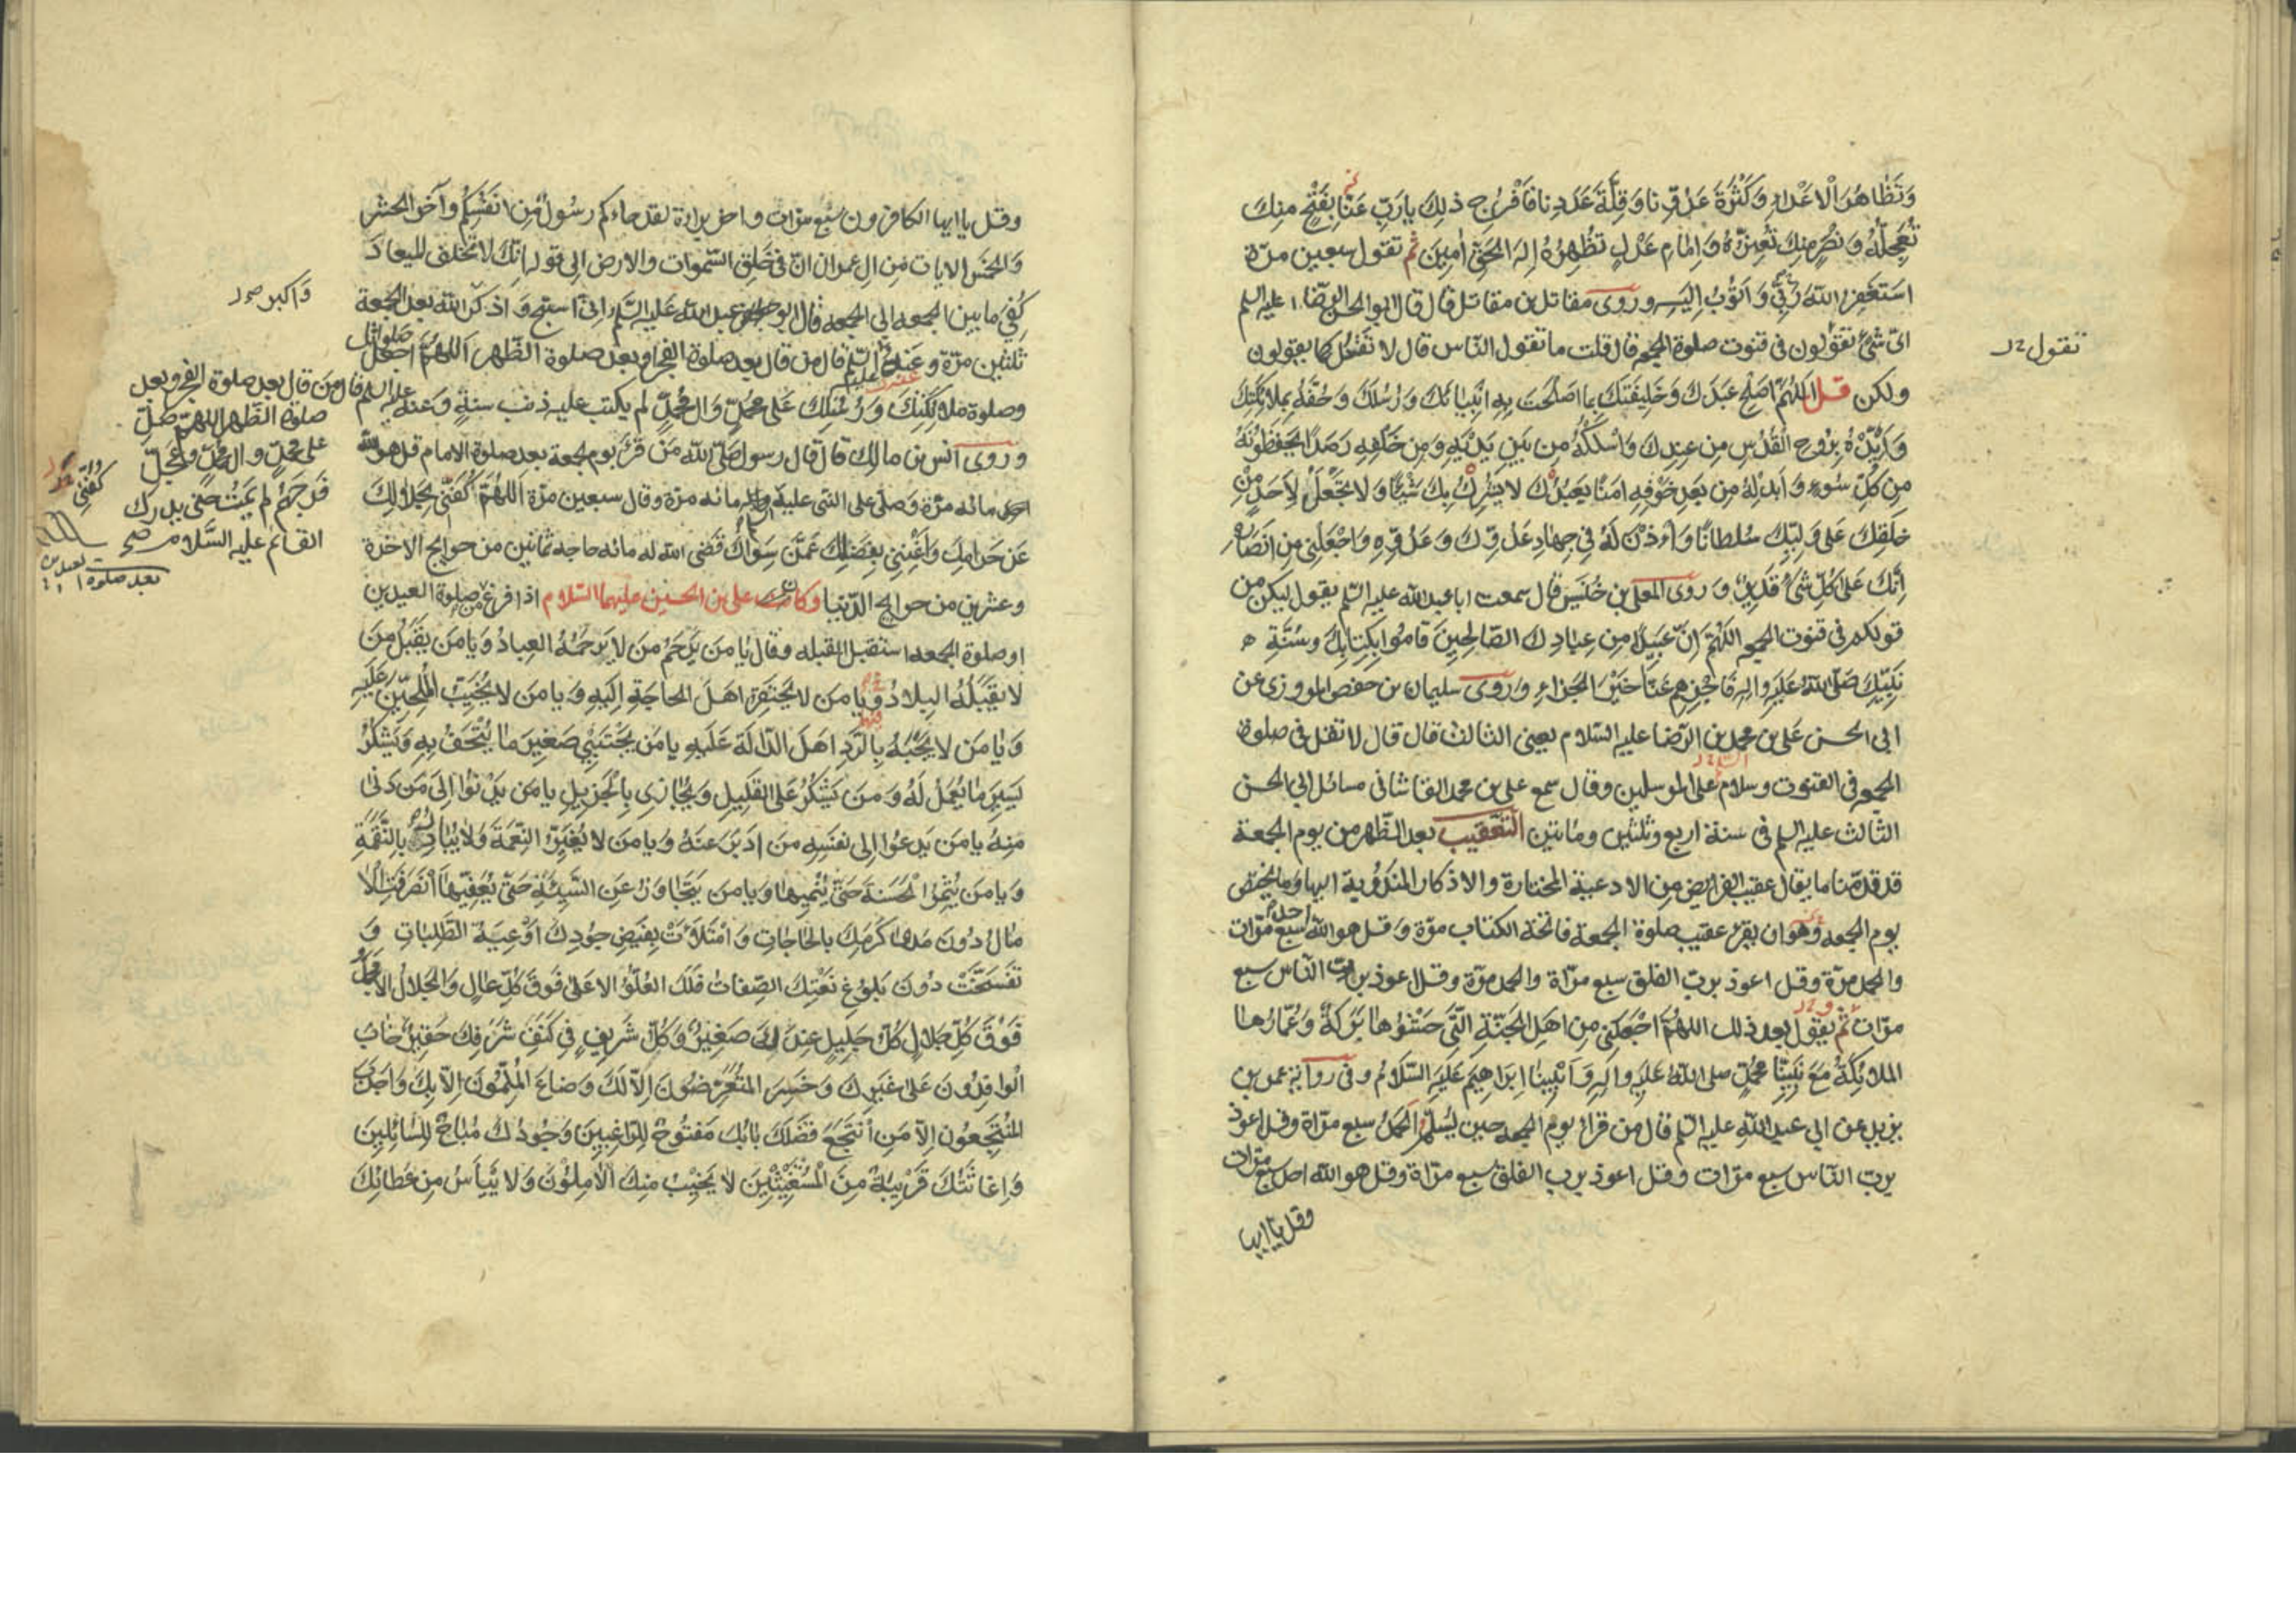 وَتَظَاهُرَ الْاَعْدَاءِ وَكَثْرَةَ عَدُوِّنا وَقِلَّةَ عَدَدِنا فَافْرُج ذلِكَ يا رَبِّ عَنّا بِفَتْحٍ مِنكَ
تُعَجِّلُهُ وَنَصْرٍ مِنكَ تُعِزُّهُ وَاِمامِ عَدْلٍ تُظْهِرُهُ اِلهَ الحَقِّ اٰمِينَ ثم تقول سبعين مرّة
اَستَغفِرُ اللهَ رَبِّي وَاَتُوبُ اِلَيهِ وروى مقاتل بن مقاتل قال قال ابو الحسن الرّضا عليه السلم
اىّ شئ تقولون فى قنوت صلوة الجمعه قال قلت ما تقول النّاس قال لا تقل كما يقولون
تقول
ولكن قل اَللّهُمَّ اَصلِح عَبدَكَ وَخَلِيفَتَكَ بِما اَصلَحتَ بِهِ اَنبِيائَكَ وَرُسُلَكَ وَحُفَّهُ بِمَلائِكَتِكَ
وَاَيِّدهُ بِرُوحِ القُدُسِ مِن عِندِكَ وَاسْلُكهُ مِن بَينِ يَدَيهِ وَمِن خَلفِهِ رَصَدًا يَحفَظُونَهُ
مِن كُلِّ سُوءٍ وَاَبدِلهُ مِن بَعدِ خَوفِهِ اَمنًا يَعبُدُكَ لا يُشرِكُ بِكَ شَيئًا وَلا تَجعَل لِاَحَدٍ مِن
خَلقِكَ عَلى وَلِيِّكَ سُلطانًا وَاْذَن لَهُ فِي جِهادِ عَدُوِّكَ وَعَدُوِّهِ وَاجعَلنِي مِن اَنصَارِه
اِنَّكَ عَلى كُلِّ شَئٍ قَدِيرٌ وَروى المعلى بن خُنَيس قال سمعت ابا عبدالله عليه السلم يقول ليكن من
قولكم فى قنوت الجمعه اللّهُمَّ اِنَّ عَبِيدًا مِن عِبادِكَ الصّالِحِينَ قامُوا بِكِتابِكَ وسُنَّةِ
نَبِيِّكَ صَلَّى اللهُ عَلَيهِ وَالِهِ فَاجزِهِم عَنّا خَيرَ الجَزاءِ وروى سليمان بن حفص المروزى عن
ابى الحسن على بن محمد بن الرّضا عليه السّلام يعنى الثالث قال قال لا تقل فى صلوة
الجمعه فى القنوت وسلام على المرسلين وقال سمع على بن محمد القاشانى مسائل ابى الحسن
الثالث عليه السلم فى سنة اربع وثلثين ومائتين التعقيب بعد الظّهر من يوم الجمعة
قد قدّمنا ما يقال عقيب الفرايض من الادعية المختارة والاذكار المندوبة اليها وما يختص
يوم الجمعه وهو ان يقرء عقيب صلوة الجمعة فاتحة الكتاب مرّة وقل هو الله احد سبع مرّات
والحمد مرّة وقل اعوذ برب الفلق سبع مرّاة والحمد مرّة وقل اعوذ برب النّاس سبع
مرّات ثم يقول بعد ذلك اللهُمَّ اجعَلنِي مِن اهلِ الجَنّةِ الّتِي حَشوُها بَرَكةٌ وَعُمّارُها
المَلائِكةُ مَعَ نَبِيِّنا مُحَمَّدٍ صلى اللهُ عَلَيهِ والِهِ وَاَبِينا اِبرَاهِيمَ عَلَيهِ السَّلامُ وفى رواية عمر بن
يزيد عن ابى عبدالله عليه السلم قال من قراء يوم الجمعه حين يُسَلِّمُ الحَمدُ سبع مرّاة وقل اعوذ
برب النّاس سبع مرّات وقل اعوذ برب الفلق سبع مرّاة وقل هو الله احد سبع مرّات
وقل يا ايها
وقل يا ايها الكافرون سبع مرّات واخر براءة لقد جاءكم رسُولٌ مِن اَنفُسِكُم وآخر الحشر
وَالخَمس الايات مِن الِ عمران انّ فى خَلقِ السّموات والارض الى قوله اِنّك لا تُخلف الميعاد
كُفِيَ ما بين الجمعه الى الجمعه قال ابو عبد الله عَلَيه السَّلم اِنّى اسبّح وَاذكر الله بعد الجمعة
وَاكبر
ثلثين مرّة وعنه عليه السلم قال من قال بعد صلوة الفجر او بعد صلوة الظّهر اَللّهُمَّ اجعَل صَلواتك
وصلوةَ مَلائِكَتِكَ وَرُسُلِكَ عَلى مُحَمّدٍ وَالِ مُحَمّدٍ لم يكتب عليه ذنب سنةٍ وعنه
عليه السلم قال مَن قال بعد صلوة الفجر وبعد
صلوة الظّهر اللهمّ صَلِّ
على محمّدٍ وال محمّدٍ وعَجّل
فَرجَهُم لم يَمُت حتى يدرك
القائم عليه السَّلام صح
وَروى اَنس بن مالك قال قال رسول صلّى الله مَن قَرَءَ يوم جمعة بعد صلوة الامام قل هو الله
احد مائه مرّة وصَلّى على النّبى عليه واله مائه مرّة وقال سبعين مرّة اَللّهُمّ اكفِنِي بِحَلالِكَ
عَن حَرامِكَ وَاَغنِنِي بِفَضلِكَ عَمَّن سِواكَ قَضَى الله له مائه حاجة ثمانين من حوايج الاخرة
وعشرين من حوايج الدّنيا وكان على بن الحسين عليهما السّلام اذا فرغ من صلوة العيدين
او صلوة الجمعه استقبل القبله وقال يا مَن يَرحَمُ مَن لا يَرحَمُهُ العِبادُ وَيا مَن يَقبَلُ مَن
لا تَقبَلُهُ البِلادُ وَيا مَن لا يَحتَقِرُ اَهلَ الحاجَةِ اِلَيهِ وَيا مَن لا يُخَيِّبُ المُلِحّينَ عَلَيهِ
وَيا مَن لا يَجبَهُ بِالرَّدِّ اَهلَ الدّالَّةِ عَلَيهِ يا مَن يَجتَبِي صَغِيرَ ما يُتحَفُ بِهِ وَيَشكُرُ
يَسِيرَ ما يُعمَلُ لَهُ وَمَن يَشكُرُ عَلى القَلِيلِ وَيُجازِى بِالجَزِيلِ يا مَن يَدنُوا اِلى مَن دَنى
مِنهُ يا مَن يَدعُوا اِلى نَفسِهِ مَن اَدبَرَ عَنهُ وَيا مَن لا يُغَيِّرُ النِّعمَةَ وَلا يُبادِرُ بِالنَّقمَةِ
وَيا مَن يُثمِرُ الحَسَنَةَ حَتّى يُنمِيها وَيا مَن يَتَجاوَزُ عَنِ السَّيِّئَةِ حَتّى يُعَفِّيَها اِنصَرَفَتِ الا
مالُ دُونَ مَدى كَرَمِكَ بِالحاجاتِ وَامتَلَأَت بِفَيضِ جُودِكَ اَوعِيَةُ الطَّلِباتِ وَ
تَفَسَّخَت دُونَ بُلُوغِ نَعتِكَ الصِّفاتُ فَلَكَ العُلُوُّ الاَعلى فَوقَ كُلِّ عالٍ وَالجَلالُ الاَمجَدُ
فَوقَ كُلِّ جَلالٍ كُلُّ جَلِيلٍ عِندَكَ صَغِيرٌ وَكُلُّ شَرِيفٍ فِي كَنَفِ شَرَفِكَ حَقِيرٌ خابَ
الوافِدُونَ عَلى غَيرِكَ وَخَسِرَ المُتَعَرِّضُونَ اِلّا لَكَ وَضاعَ المُلِمُّونَ اِلّا بِكَ وَاَجدَبَ
المُنتَجِعُونَ اِلّا مَنِ انتَجَعَ فَضلَكَ بابُكَ مَفتُوحٌ لِلرّاغِبِينَ وَجُودُكَ مُباحٌ لِلسّائِلِينَ
وَاِغاثَتُكَ قَرِيبَةٌ مِنَ المُستَغِيثِينَ لا يَخِيبُ مِنكَ الامِلُونَ وَلا يَيأَسُ مِن عَطائِكَ